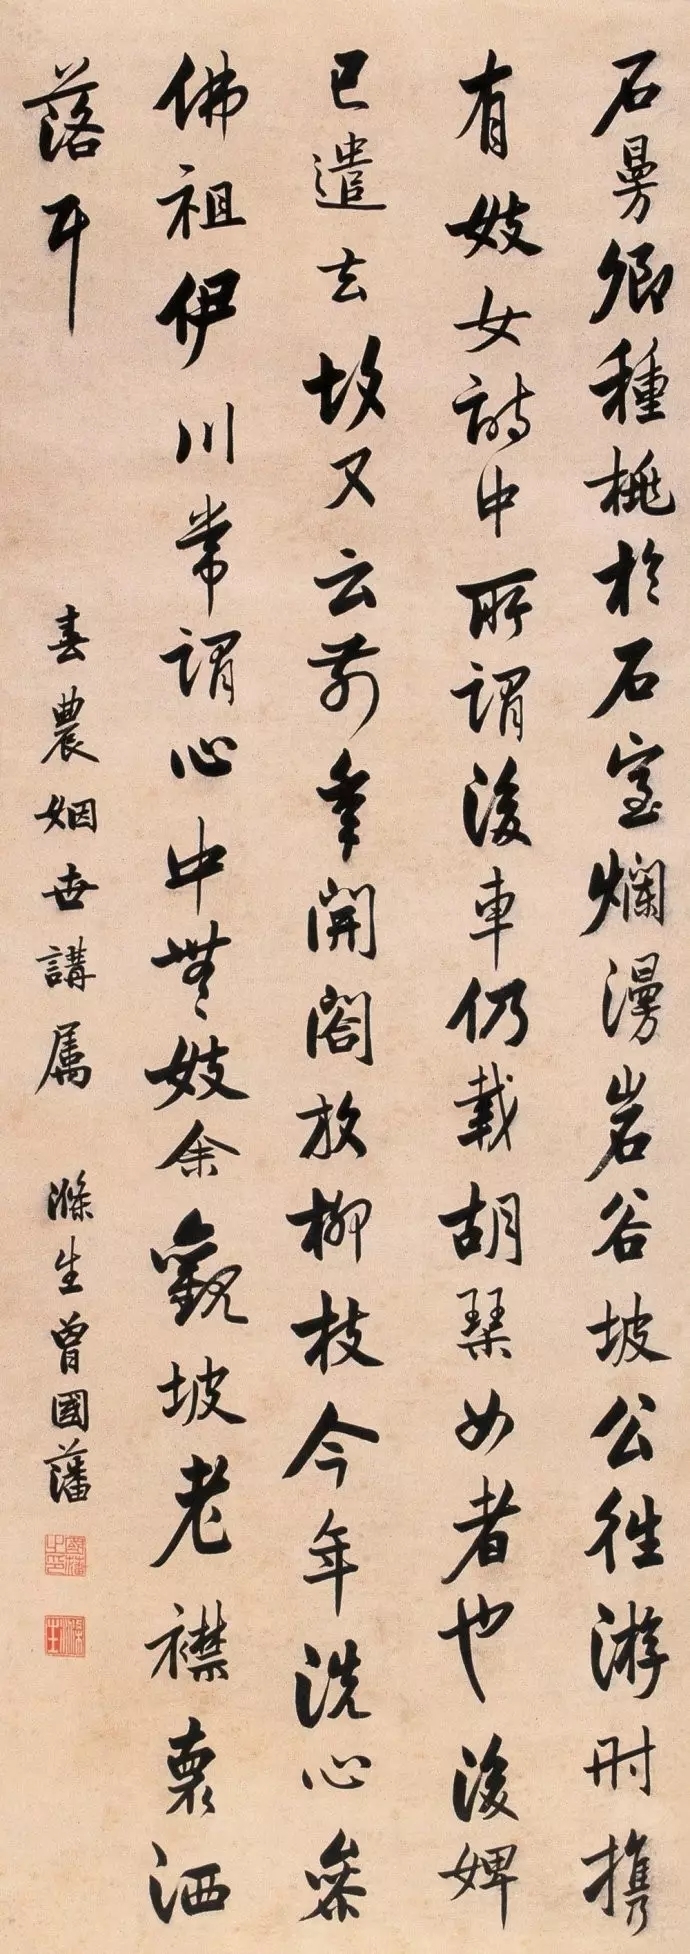 石曼卿種桃於石室爛漫岩谷坡公往游時携
有妓女詩中所謂後車仍載胡琴女者也後婢
已遣去故又云前年開閤放柳枝今年洗心參
佛祖伊川常謂心中無妓余觀坡老襟褱洒
落耳
春農姻世講属
滌生曾國藩
國藩之印
滌生